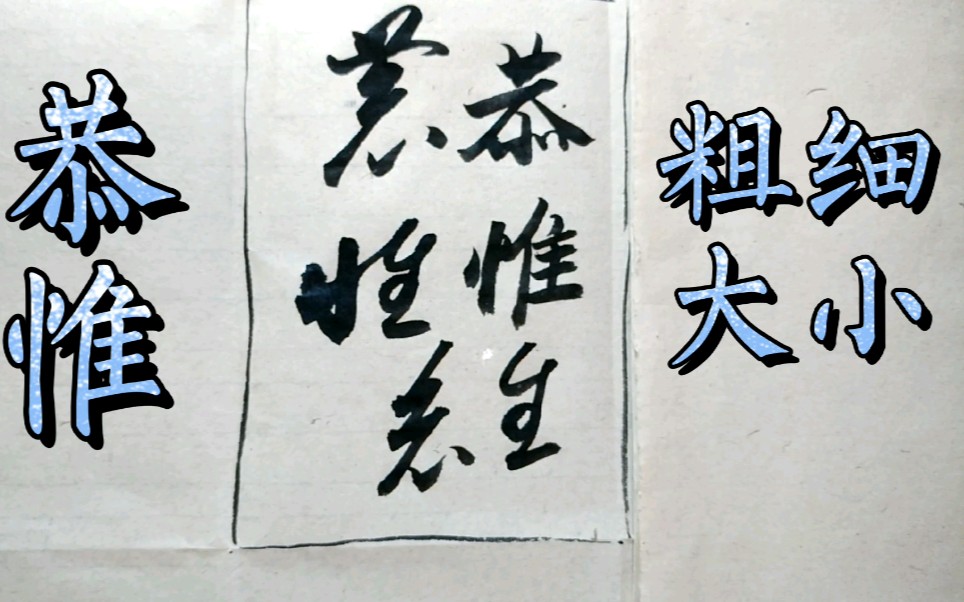 恭惟
恭惟
恭惟
粗细
大小